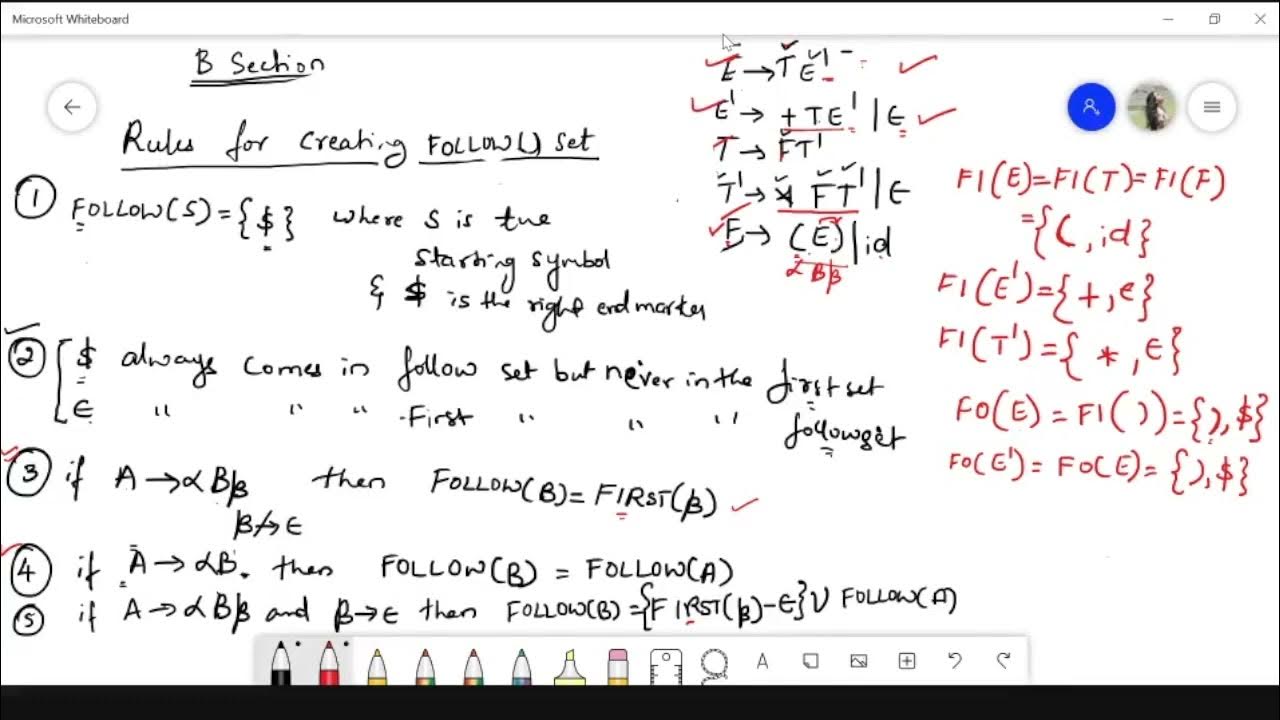 Microsoft Whiteboard
B Section
Rules for creating FOLLOW() set
① FOLLOW(S)={$} where S is the
starting symbol
& $ is the right end marker
② $ always comes in follow set but never in the first set
ϵ " " " First " " " follow set
③ if A→αBβ then FOLLOW(B)=FIRST(β)
β↛ϵ
④ if A→αB. then FOLLOW(B) = FOLLOW(A)
⑤ if A→αBβ and β→ϵ then FOLLOW(B)={FIRST(β)-ϵ}∪ FOLLOW(A)
E→TE'
E'→ +TE'|ϵ
T→ FT'
T'→ * FT'|ϵ
F→ (E)|id
αBβ
FI(E)=FI(T)=FI(F)
={(,id}
FI(E')={+,ϵ}
FI(T')={ *,ϵ}
FO(E) = FI())={),$}
FO(E')= FO(E)= {),$}
A